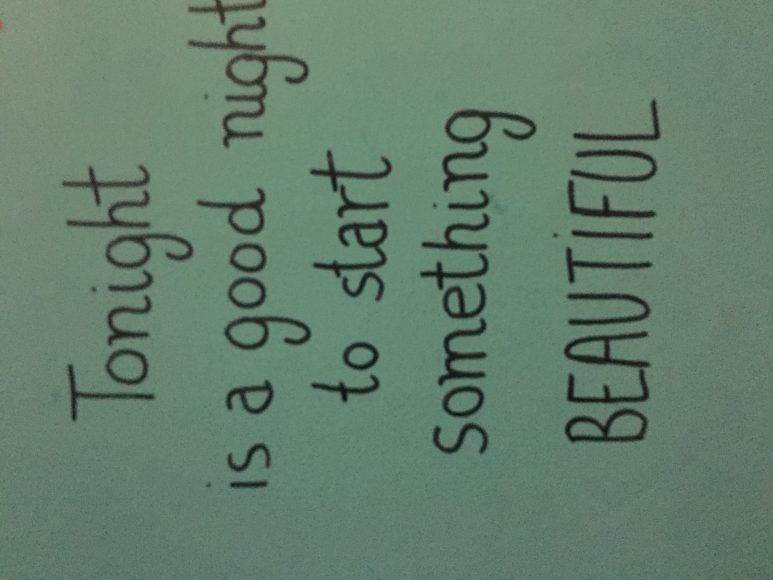 Tonight
is a good night
to start
something
BEAUTiFUL